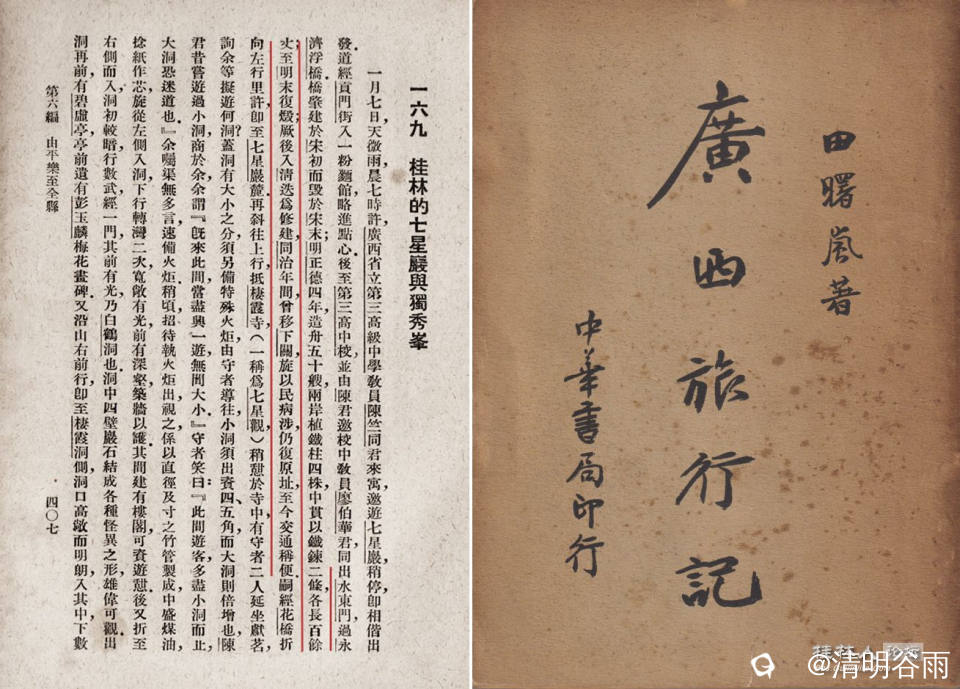 田曙嵐著
廣西旅行記
中華書局印行
一六九　桂林的七星巖與獨秀峯
一月七日天微雨晨七時許，廣西省立第三高級中學敎員陳竺同君來寓邀遊七星巖，稍停卽相偕出
發道經貢門街入一粉麵館略進點心後至第三高中校並由陳君邀校中敎員廖伯華君同出水東門過永
濟浮橋橋肇建於宋初而毀於宋末；明正德四年造舟五十艘兩岸植鐵柱四株中貫以鐵鍊二條各長百餘
丈；至明末復燬厥後入清迭爲修建同治年間曾移下關旋以民病涉仍復原址，至今交通稱便嗣經花橋折
向左行里許卽至七星巖麓再斜往上行抵棲霞寺（一稱爲七星觀）稍憩於寺中有守者二人延坐獻茗，
詢余等擬遊何洞？蓋洞有大小之分須另備特殊火炬由守者導往小洞須出資四、五角而大洞則倍增也陳
君昔嘗遊過小洞，商於余余謂『旣來此間當盡興一遊無間大小。』守者笑曰：『此間遊客多盡小洞而止，
大洞恐迷道也。』余囑渠無多言，速備火炬稍頃，招待執火炬出視之係以直徑及寸之竹管製成中盛煤油，
捻紙作芯，旋從左側入洞，下行轉灣二次，寬敞有光前有深壑築牆以護其間，建有樓閣可資遊憩。後又折至
右側而入洞初較暗行數武經一門其前有光，乃白鶴洞也。洞中四壁巖石結成各種怪異之形，雄偉可觀出
洞再前有碧虛亭，亭前遺有彭玉麟梅花畫碑。又沿山右前行卽至棲霞洞側洞口高敞而明朗，入其中下數
第六編　由平樂至全縣
四〇七
桂林人
@清明谷雨